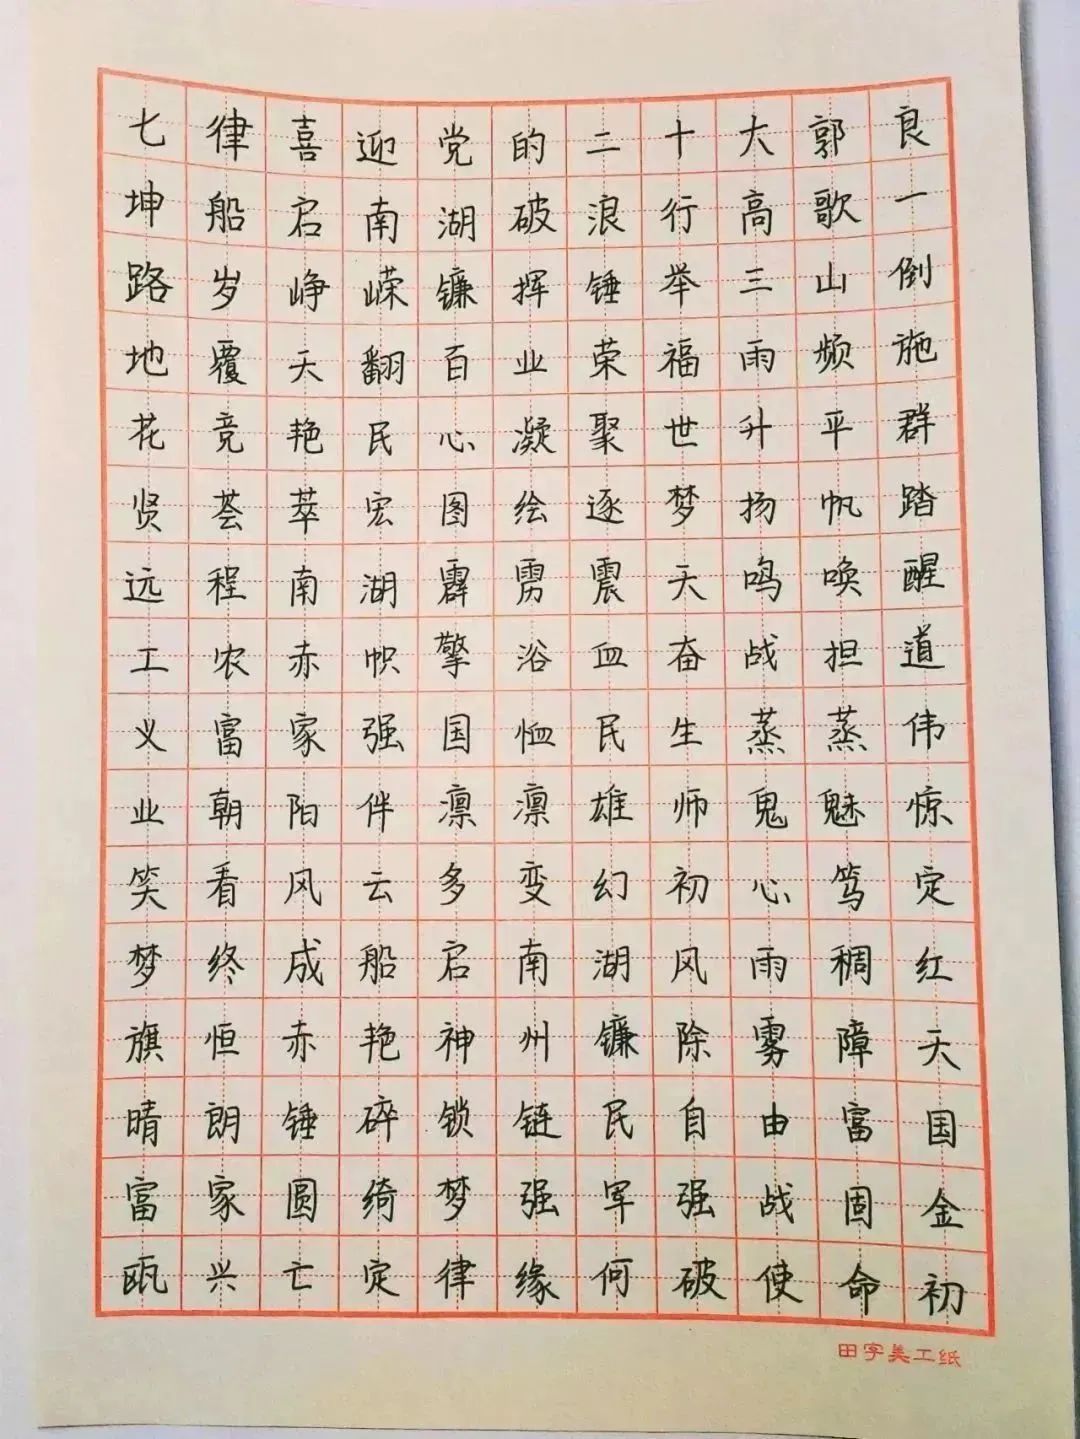 七律喜迎党的二十大郭良
坤船启南湖破浪行高歌一
路岁峥嵘镰挥锤举三山倒
地覆天翻百业荣福雨频施
花竞艳民心凝聚世升平群
贤荟萃宏图绘逐梦扬帆踏
远程南湖霹雳震天鸣唤醒
工农赤帜擎浴血奋战担道
义富家强国恤民生蒸蒸伟
业朝阳伴凛凛雄师鬼魅惊
笑看风云多变幻初心笃定
梦终成船启南湖风雨稠红
旗恒赤艳神州镰除雾障天
晴朗锤碎锁链民自由富国
富家圆绮梦强军强战固金
瓯兴亡定律缘何破使命初
田字美工纸